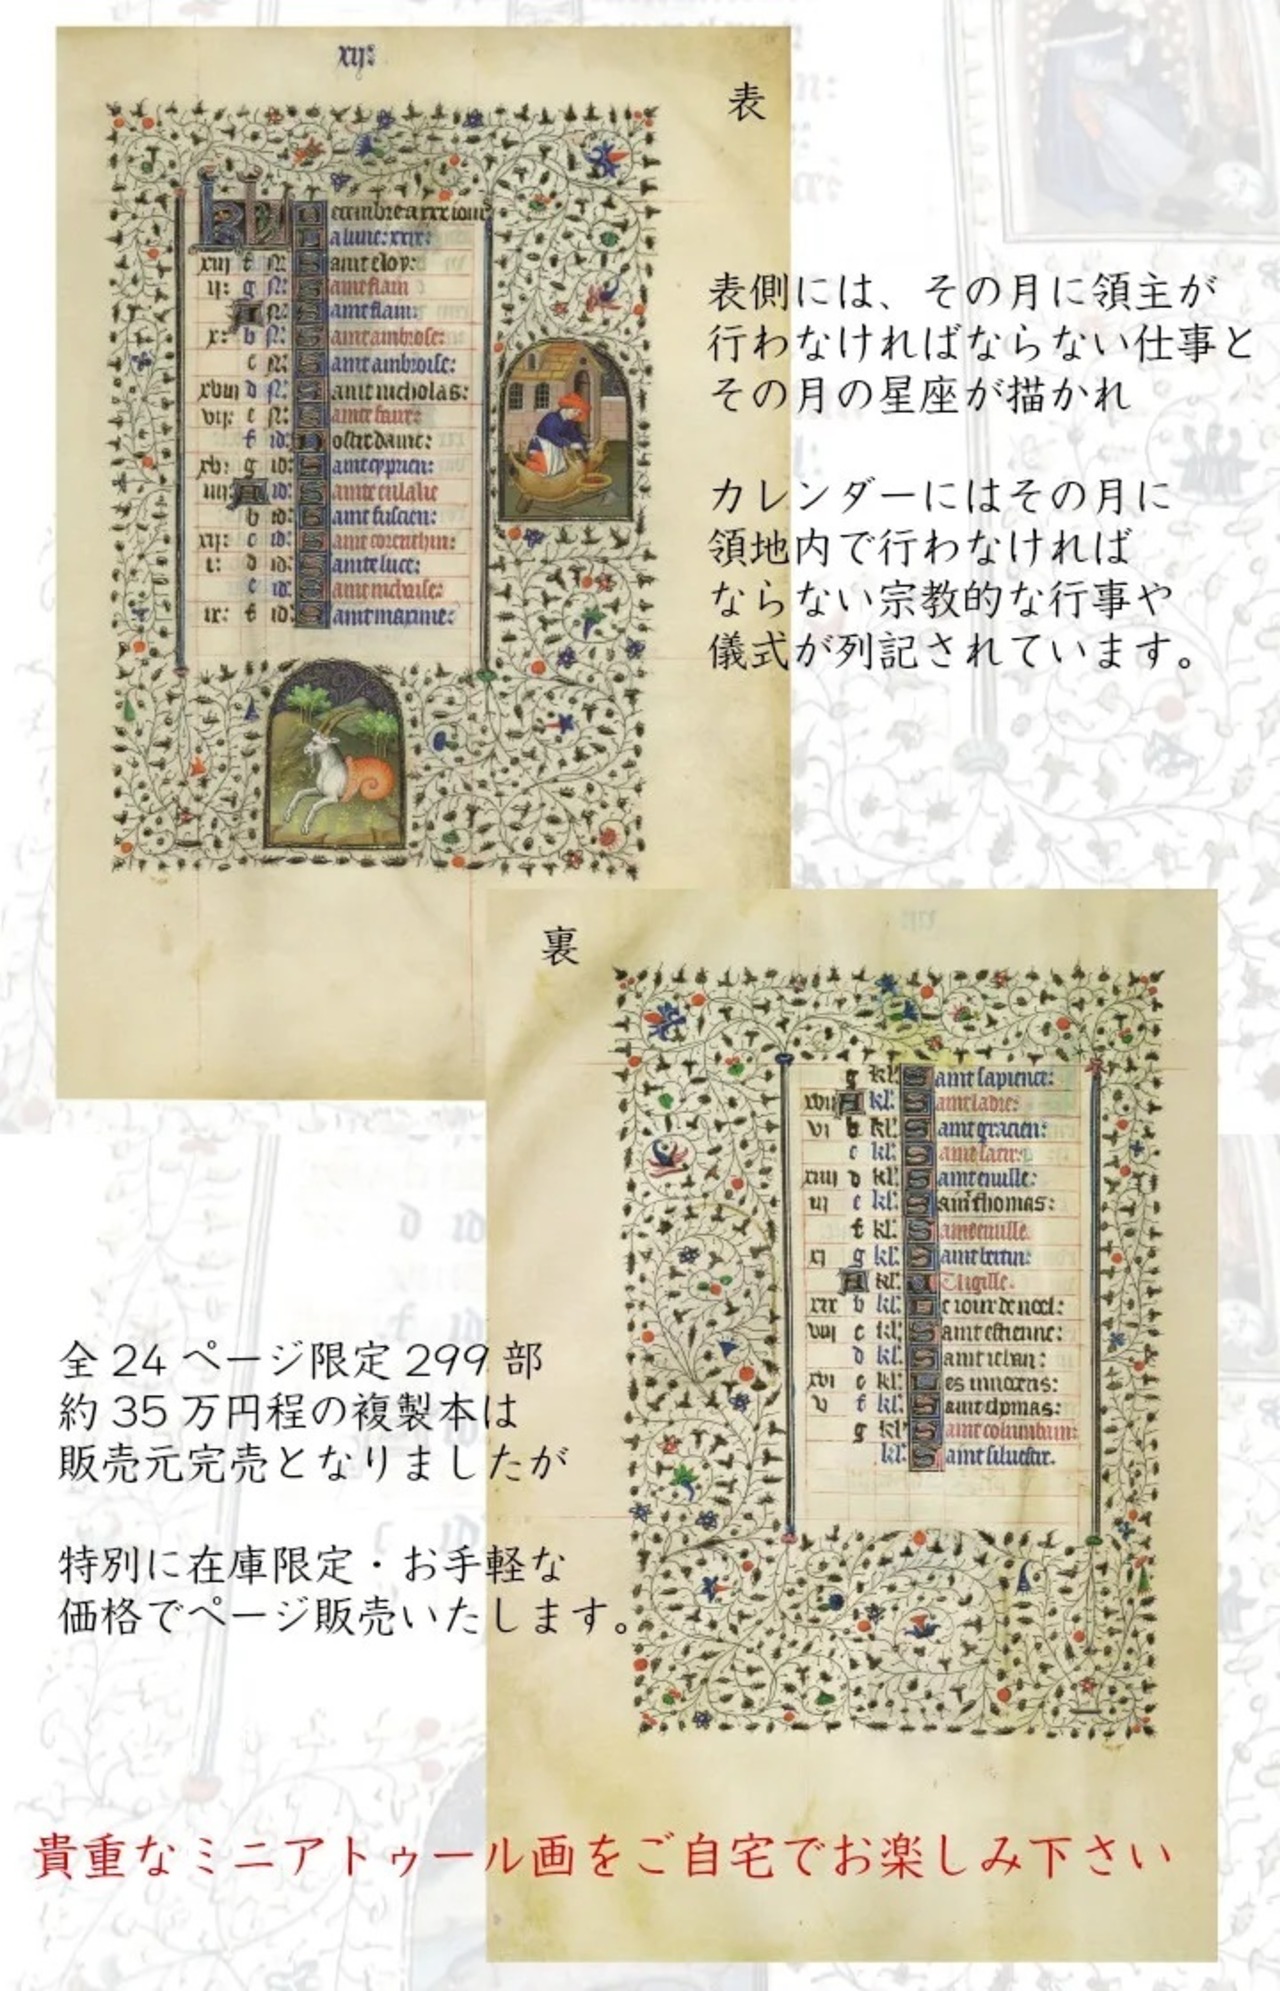 表
xij
表側には、その月に領主が
行わなければならない仕事と
その月の星座が描かれ
カレンダーにはその月に
領地内で行わなければ
ならない宗教的な行事や
儀式が列記されています。
ecembre a xxx iours
a lune: xxix:
xiij f N: S aint eloy:
ij: g N: S aint flain
A N: S aint flain:
x: b N: S aint ambrose:
c N: S aint ambroise:
xviij d N: S aint nicholas:
vij: e N: S aint
f id: ostre dame:
xv: g id: S aint cyprien:
iiij: A id: S ainte eulalie
b id: S aint fuscien:
xij: c id: S aint corenthin:
i: d id: S ainte luce:
e id: S aint nichaise:
ix: f id: S aint maxime:
裏
g kl: S aint sapience:
xvij A kl: S aint ladre:
vi b kl: S aint gracien:
c kl: S aint
xiiij d kl: S aint
iij e kl: S aint thomas:
f kl: S aint
xi g kl: S aint
A kl: Uigille.
xix b kl: e iour de noel:
viij c kl: S aint estienne:
d kl: S aint iehan:
xvi e kl: es innocens:
v f kl: S aint
g kl: S ainte columbam:
kl: S aint siluestre.
全 24 ページ限定 299 部
約 35 万円程の複製本は
販売元完売となりましたが
特別に在庫限定・お手軽な
価格でページ販売いたします。
貴重なミニアトゥール画をご自宅でお楽しみ下さい